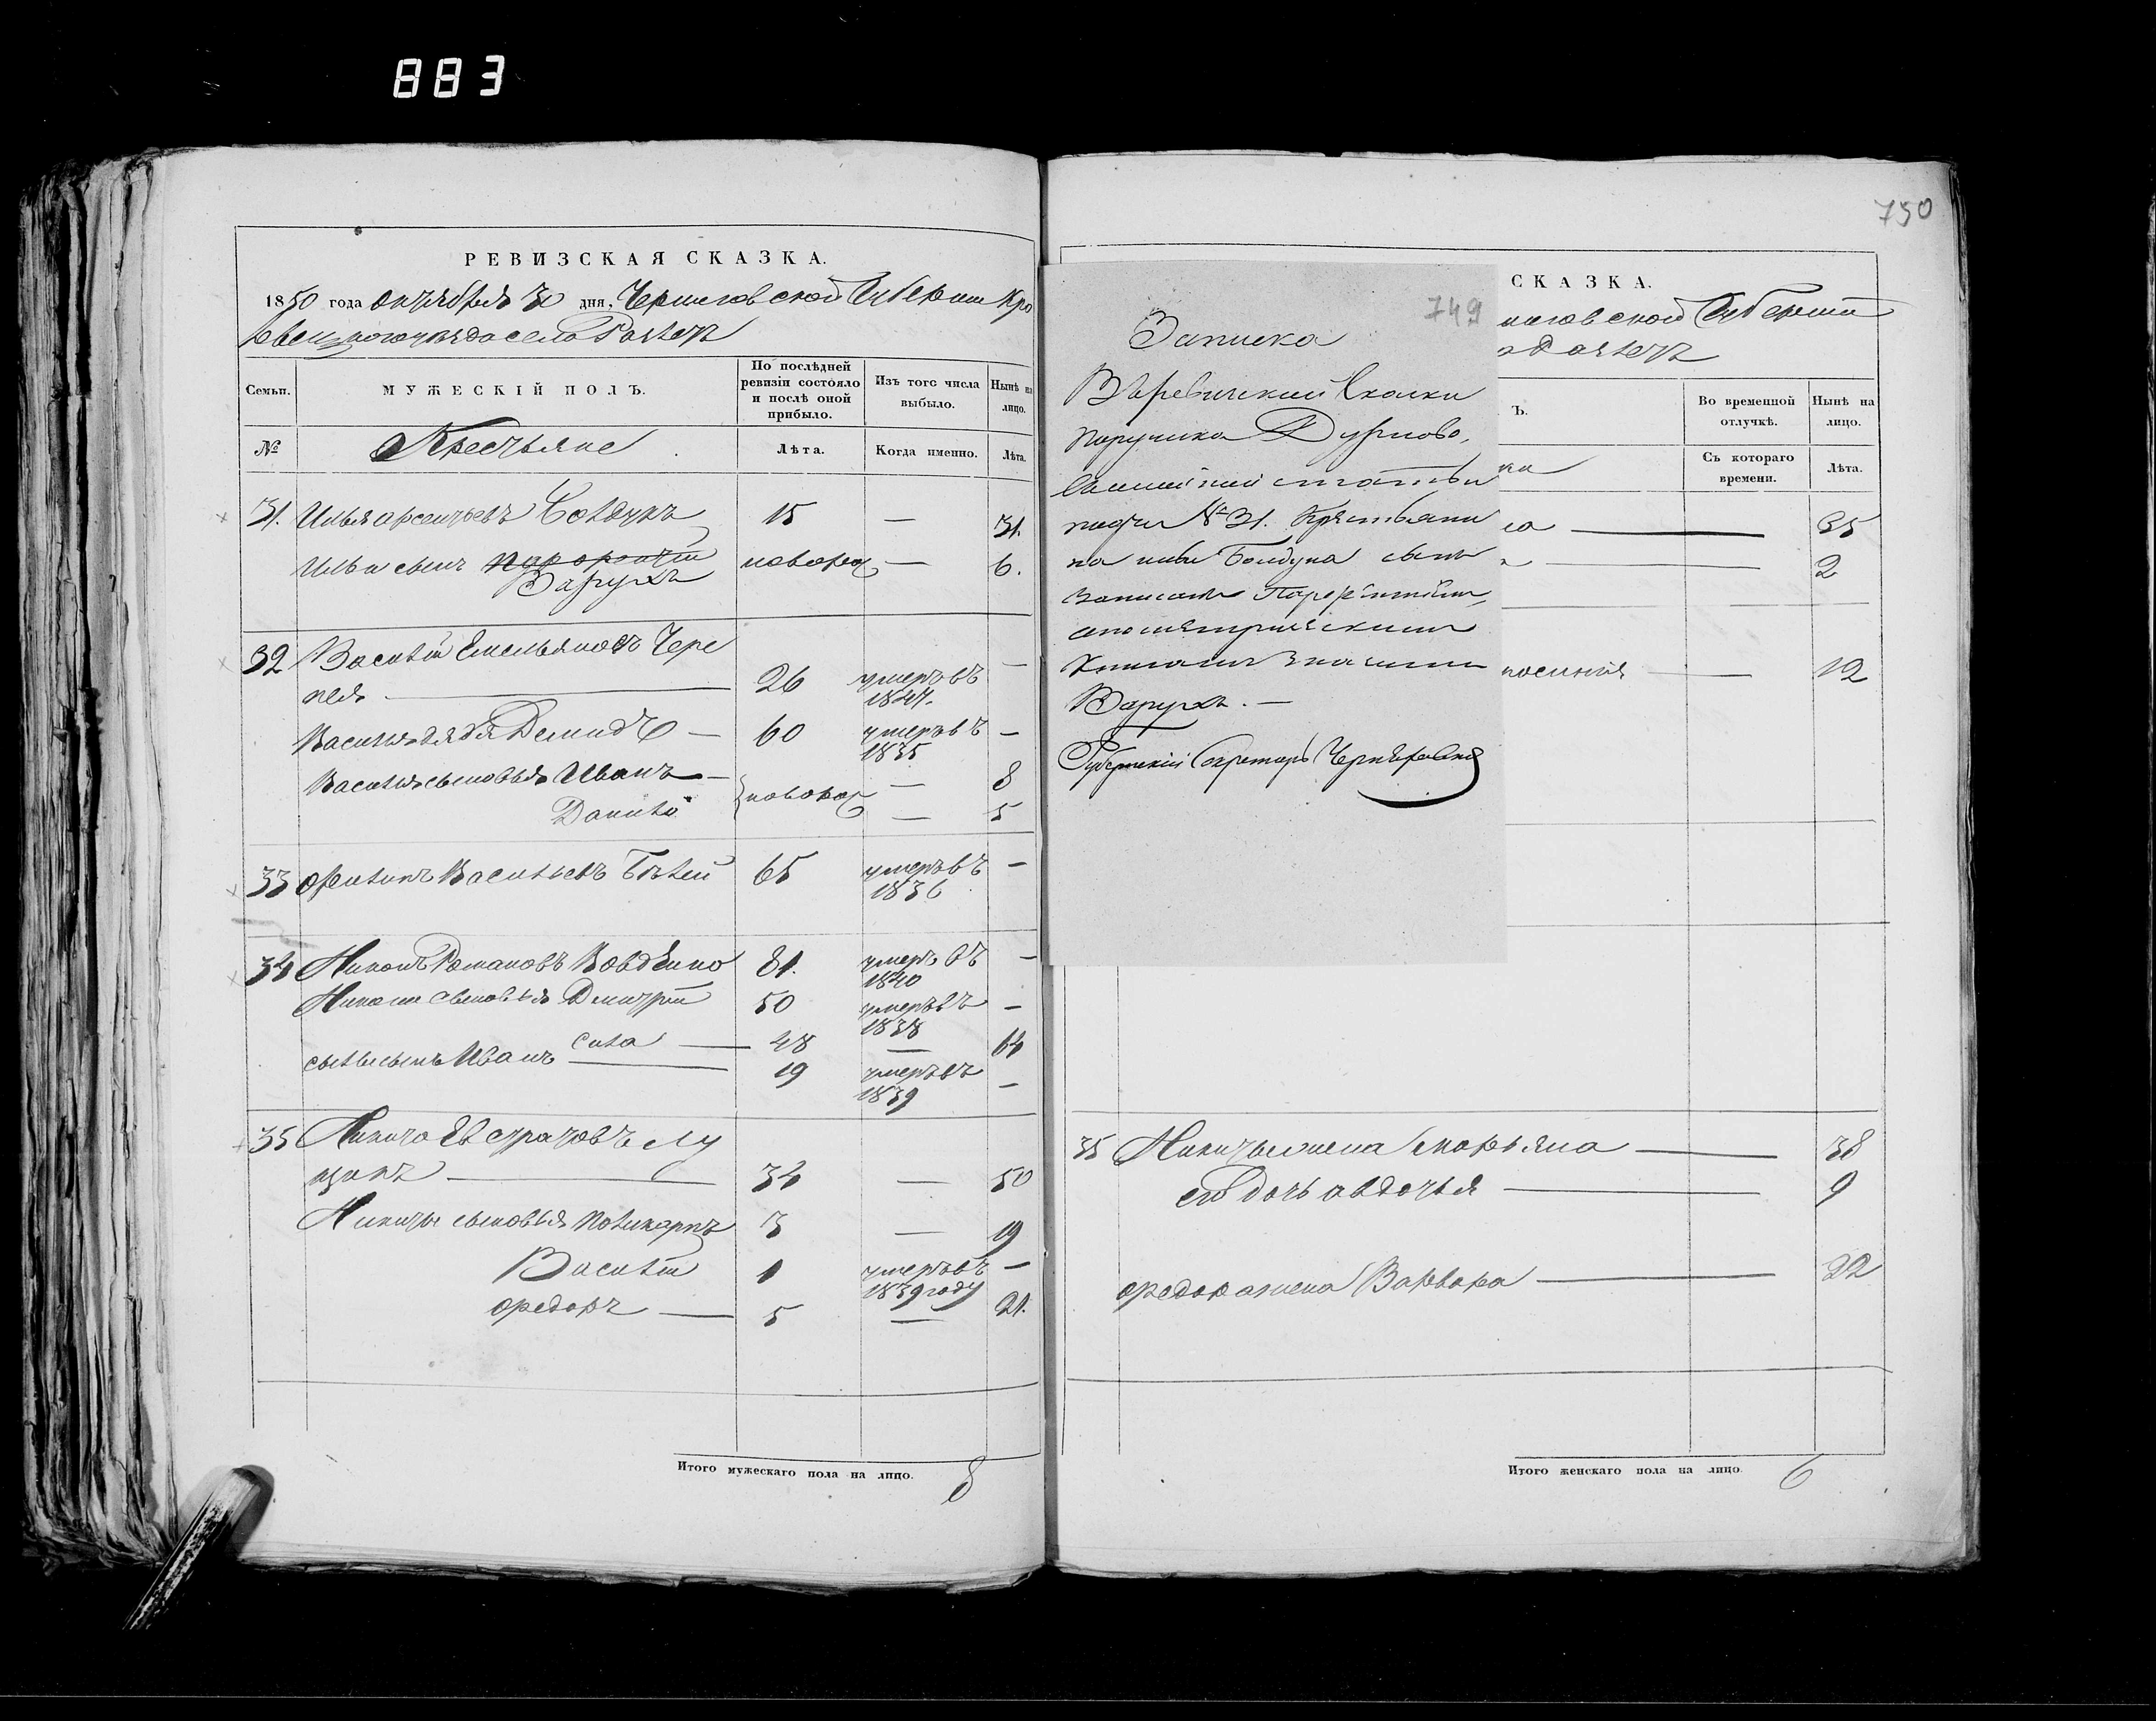 883
РЕВИЗСКАЯ СКАЗКА.
1850 года октября 30 дня. Черниговской Губернии Кро
левецкого уезда села
Семьи.
МУЖЕСКІЙ ПОЛЪ.
По послѣдней ревизіи состояло и послѣ оной прибыло.
Изъ того числа выбыло.
Нынѣ на лицо.
№
Крестьяне
Лѣта.
Когда именно.
Лѣта.
31. Илья Арсентьевъ Болдукъ 15 — 31.
Ильи сынъ Варухъ новорож — 6.
32 Василій Емельяновъ Чере
пея — 26 умеръ въ 1847. —
Василия дядя Демидъ — 60 умеръ въ 1835 —
Василия сыновья Иванъ — новорож — 8
Данило — 5
33 Филипъ Васильевъ Бѣлей 65 умеръ въ 1836 —
34 Никонъ Романовъ Вовденко 81. умеръ въ 1840 —
Никона сыновья Дмитрій 50 умеръ въ 1838 —
Сила — 48 — 64
Силы сынъ Иванъ — 19 умеръ въ 1839 —
35 Никита Евстратовъ Лу
цикъ — 34 — 50
Никиты сыновья Поликарпъ 3 — 19
Василій 1 умеръ въ 1839 году —
Федоръ — 5 — 21.
Итого мужескаго пола на лицо. 8
749
Записка
В Ревизский Сказки
поручика Дурново,
подъ № 31. Крестьяни
на Ильи Болдука сынъ
записанъ Парфентіем,
а по метрическимъ
книгамъ значится
Варухъ. —
Губернскій Секретарь
750
СКАЗКА.
Губерніи
Ъ.
Во временной отлучкѣ.
Нынѣ на лицо.
Съ котораго времени.
Лѣта.
— 35
— 2
— 12
35 Никиты жена Марьяна — 38
его дочь Авдотья — 9
Федора жена Варвара — 22
Итого женскаго пола на лицо. 6